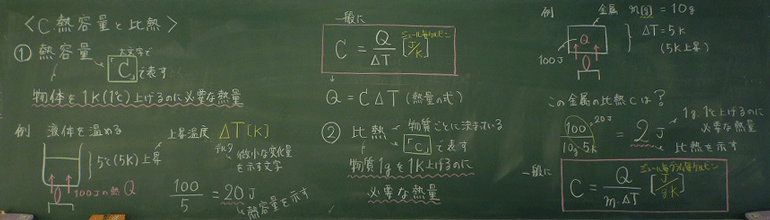 ＜C. 熱容量と比熱＞
① 熱容量
大文字で
C で表す
物体を1K(1℃)上げるのに必要な熱量
例 液体を温める
5℃(5K)上昇
100Jの熱 Q
上昇温度 ΔT[K]
デルタ 微小な変化量
を示す文字
100/5 = 20J
熱容量を示す
一般に
C = Q/ΔT [J/K]
ジュール毎ケルビン
Q = CΔT (熱量の式)
② 比熱
物質ごとに決まっている
「C」で表す
物質1gを1K上げるのに
必要な熱量
例
金属 m[g] = 10g
Q
100J
ΔT = 5K
(5K上昇)
この金属の比熱cは?
20J
100/10g・5K = 2J
1g 1℃上げるのに
必要な熱量
比熱を示す
一般に
C = Q/m・ΔT [J/g・K]
ジュール毎グラム毎ケルビン